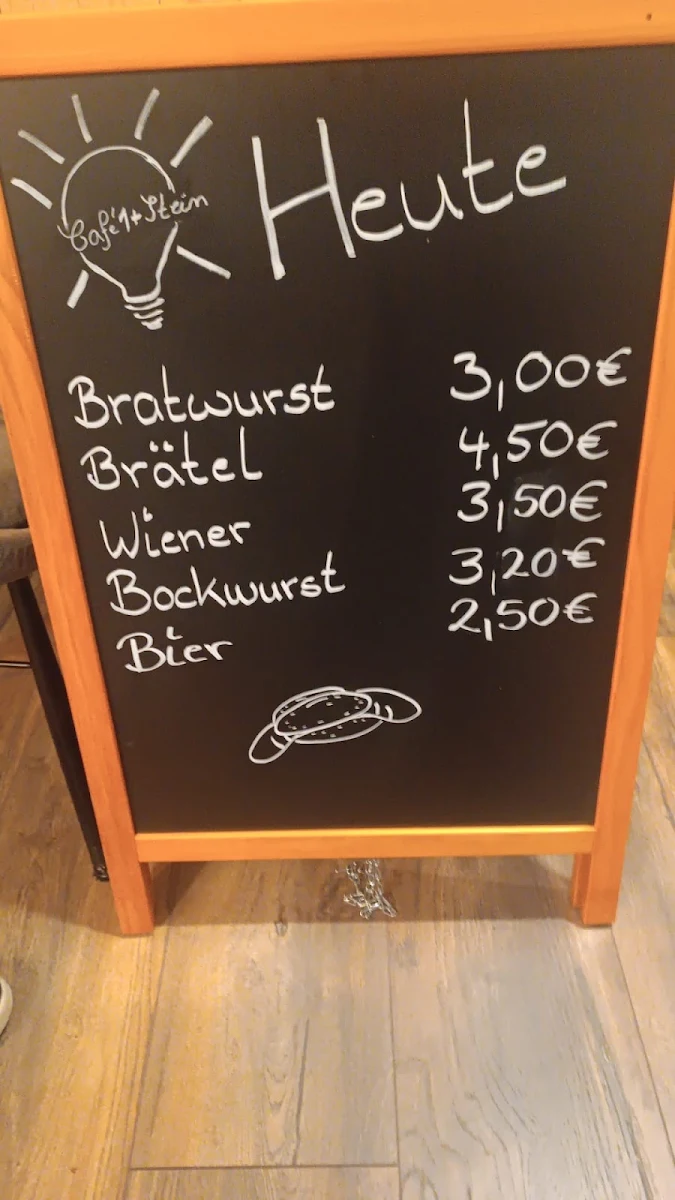 Café 1+Stein
Heute
Bratwurst 3,00€
Brätel 4,50€
Wiener 3,50€
Bockwurst 3,20€
Bier 2,50€